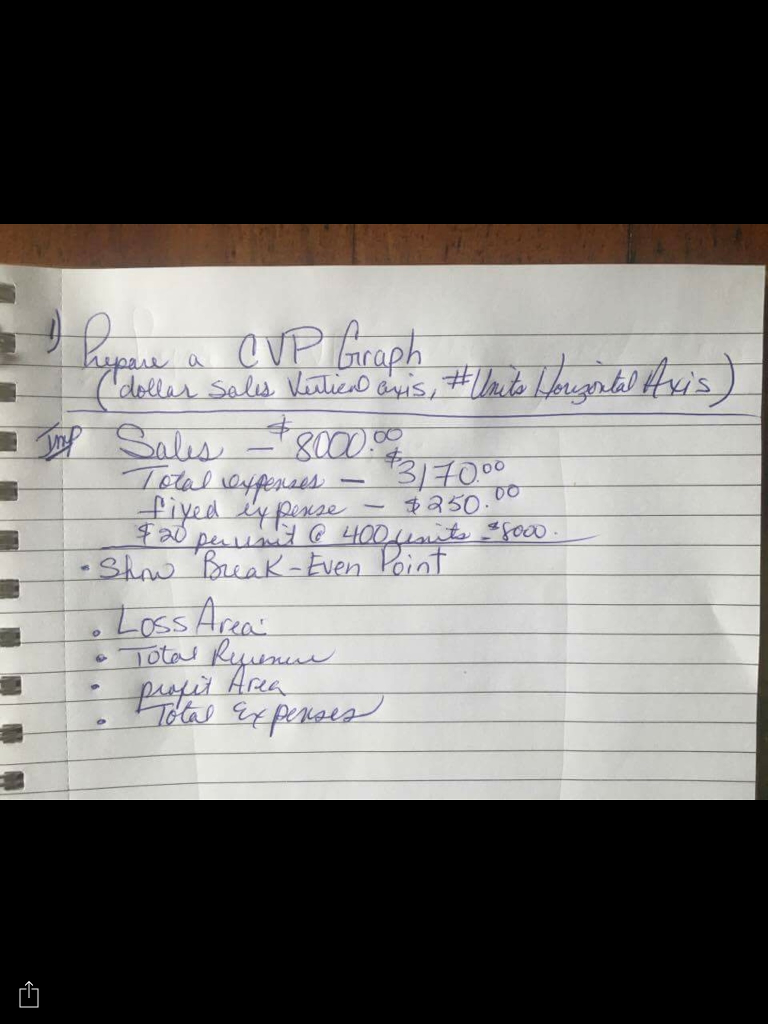 1) Prepare a CVP Graph
(dollar sales Vertical axis, # Units Horizontal Axis)
Inf Sales - $8000.00
Total expenses - $3170.00
fixed expense - $250.00
$20 per unit @ 400 units = $8000.
• Show Break-Even Point
• Loss Area:
• Total Revenue
• profit Area
• Total Expenses